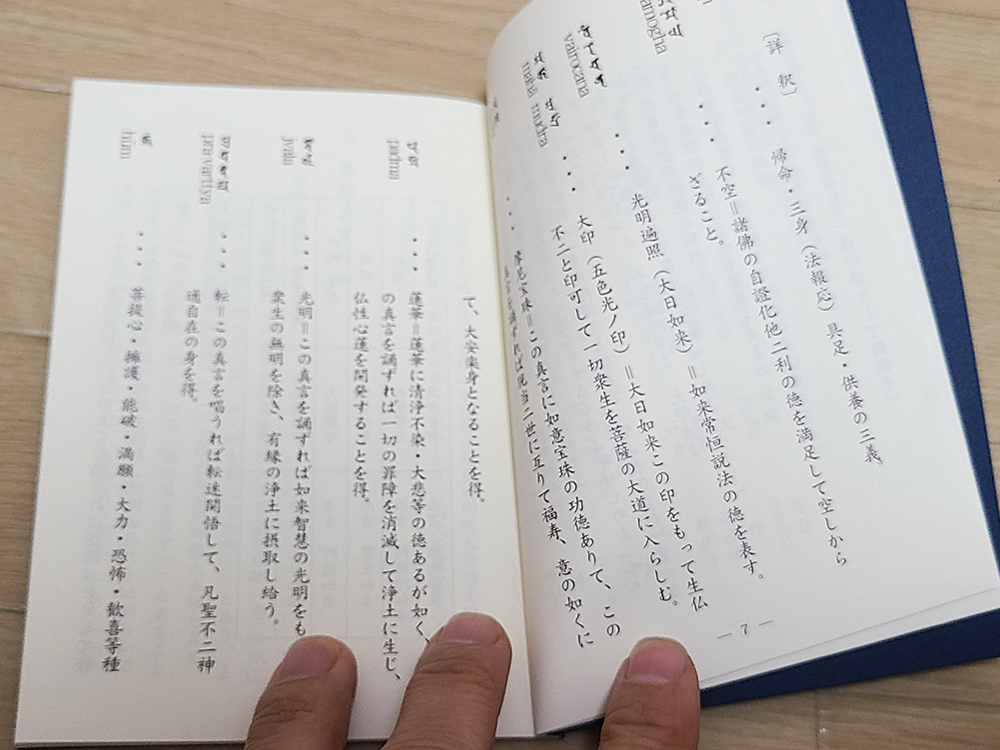 〔詳 釈〕
・・・ 帰命・三身（法報応）具足・供養の三義
amogha ・・・ 不空＝諸佛の自證化他二利の徳を満足して空しから
ざること。
vairocana ・・・ 光明遍照（大日如来）＝如来常恒説法の徳を表す。
maha mudra ・・・ 大印（五色光ノ印）＝大日如来この印をもって生仏
不二と印可して一切衆生を菩薩の大道に入らしむ。
・・・ 宝珠＝この真言に如意宝珠の功徳ありて、この
真言を誦ずれば現当二世に亙りて福寿、意の如くに
― 7 ―
て、大安楽身となることを得。
padma ・・・ 蓮華＝蓮華に清浄不染・大悲等の徳あるが如く、
の真言を誦ずれば一切の罪障を消滅して浄土に生じ、
仏性心蓮を開発することを得。
jvala ・・・ 光明＝この真言を誦ずれば如来智慧の光明をも
衆生の無明を除き、有縁の浄土に摂取し給う。
pravarttya ・・・ 転＝この真言を唱うれば転迷開悟して、凡聖不二神
通自在の身を得。
hūm ・・・ 菩提心・擁護・能破・満願・大力・恐怖・歓喜等種